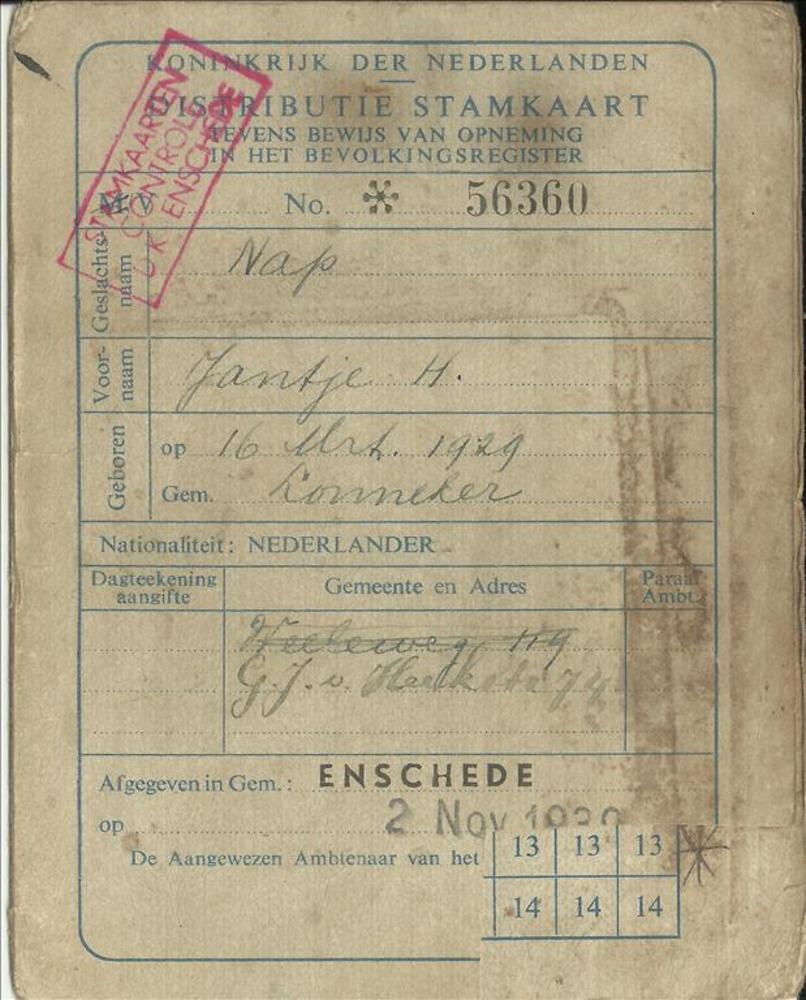 KONINKRIJK DER NEDERLANDEN
DISTRIBUTIE STAMKAART
TEVENS BEWIJS VAN OPNEMING
IN HET BEVOLKINGSREGISTER
STAMKAARTEN
CONTROLE
ENSCHEDE
M. V. No. * 56360
Geslachts-
naam
Nap
Voor-
naam
Jantje H.
Geboren
op 16 Mrt. 1929
Gem. Lonneker
Nationaliteit: NEDERLANDER
Dagteekening
aangifte
Gemeente en Adres
Paraaf
Ambt.
119
G.J. v.
Afgegeven in Gem.: ENSCHEDE
op 2 Nov 1939
De Aangewezen Ambtenaar van het
13 13 13
14 14 14